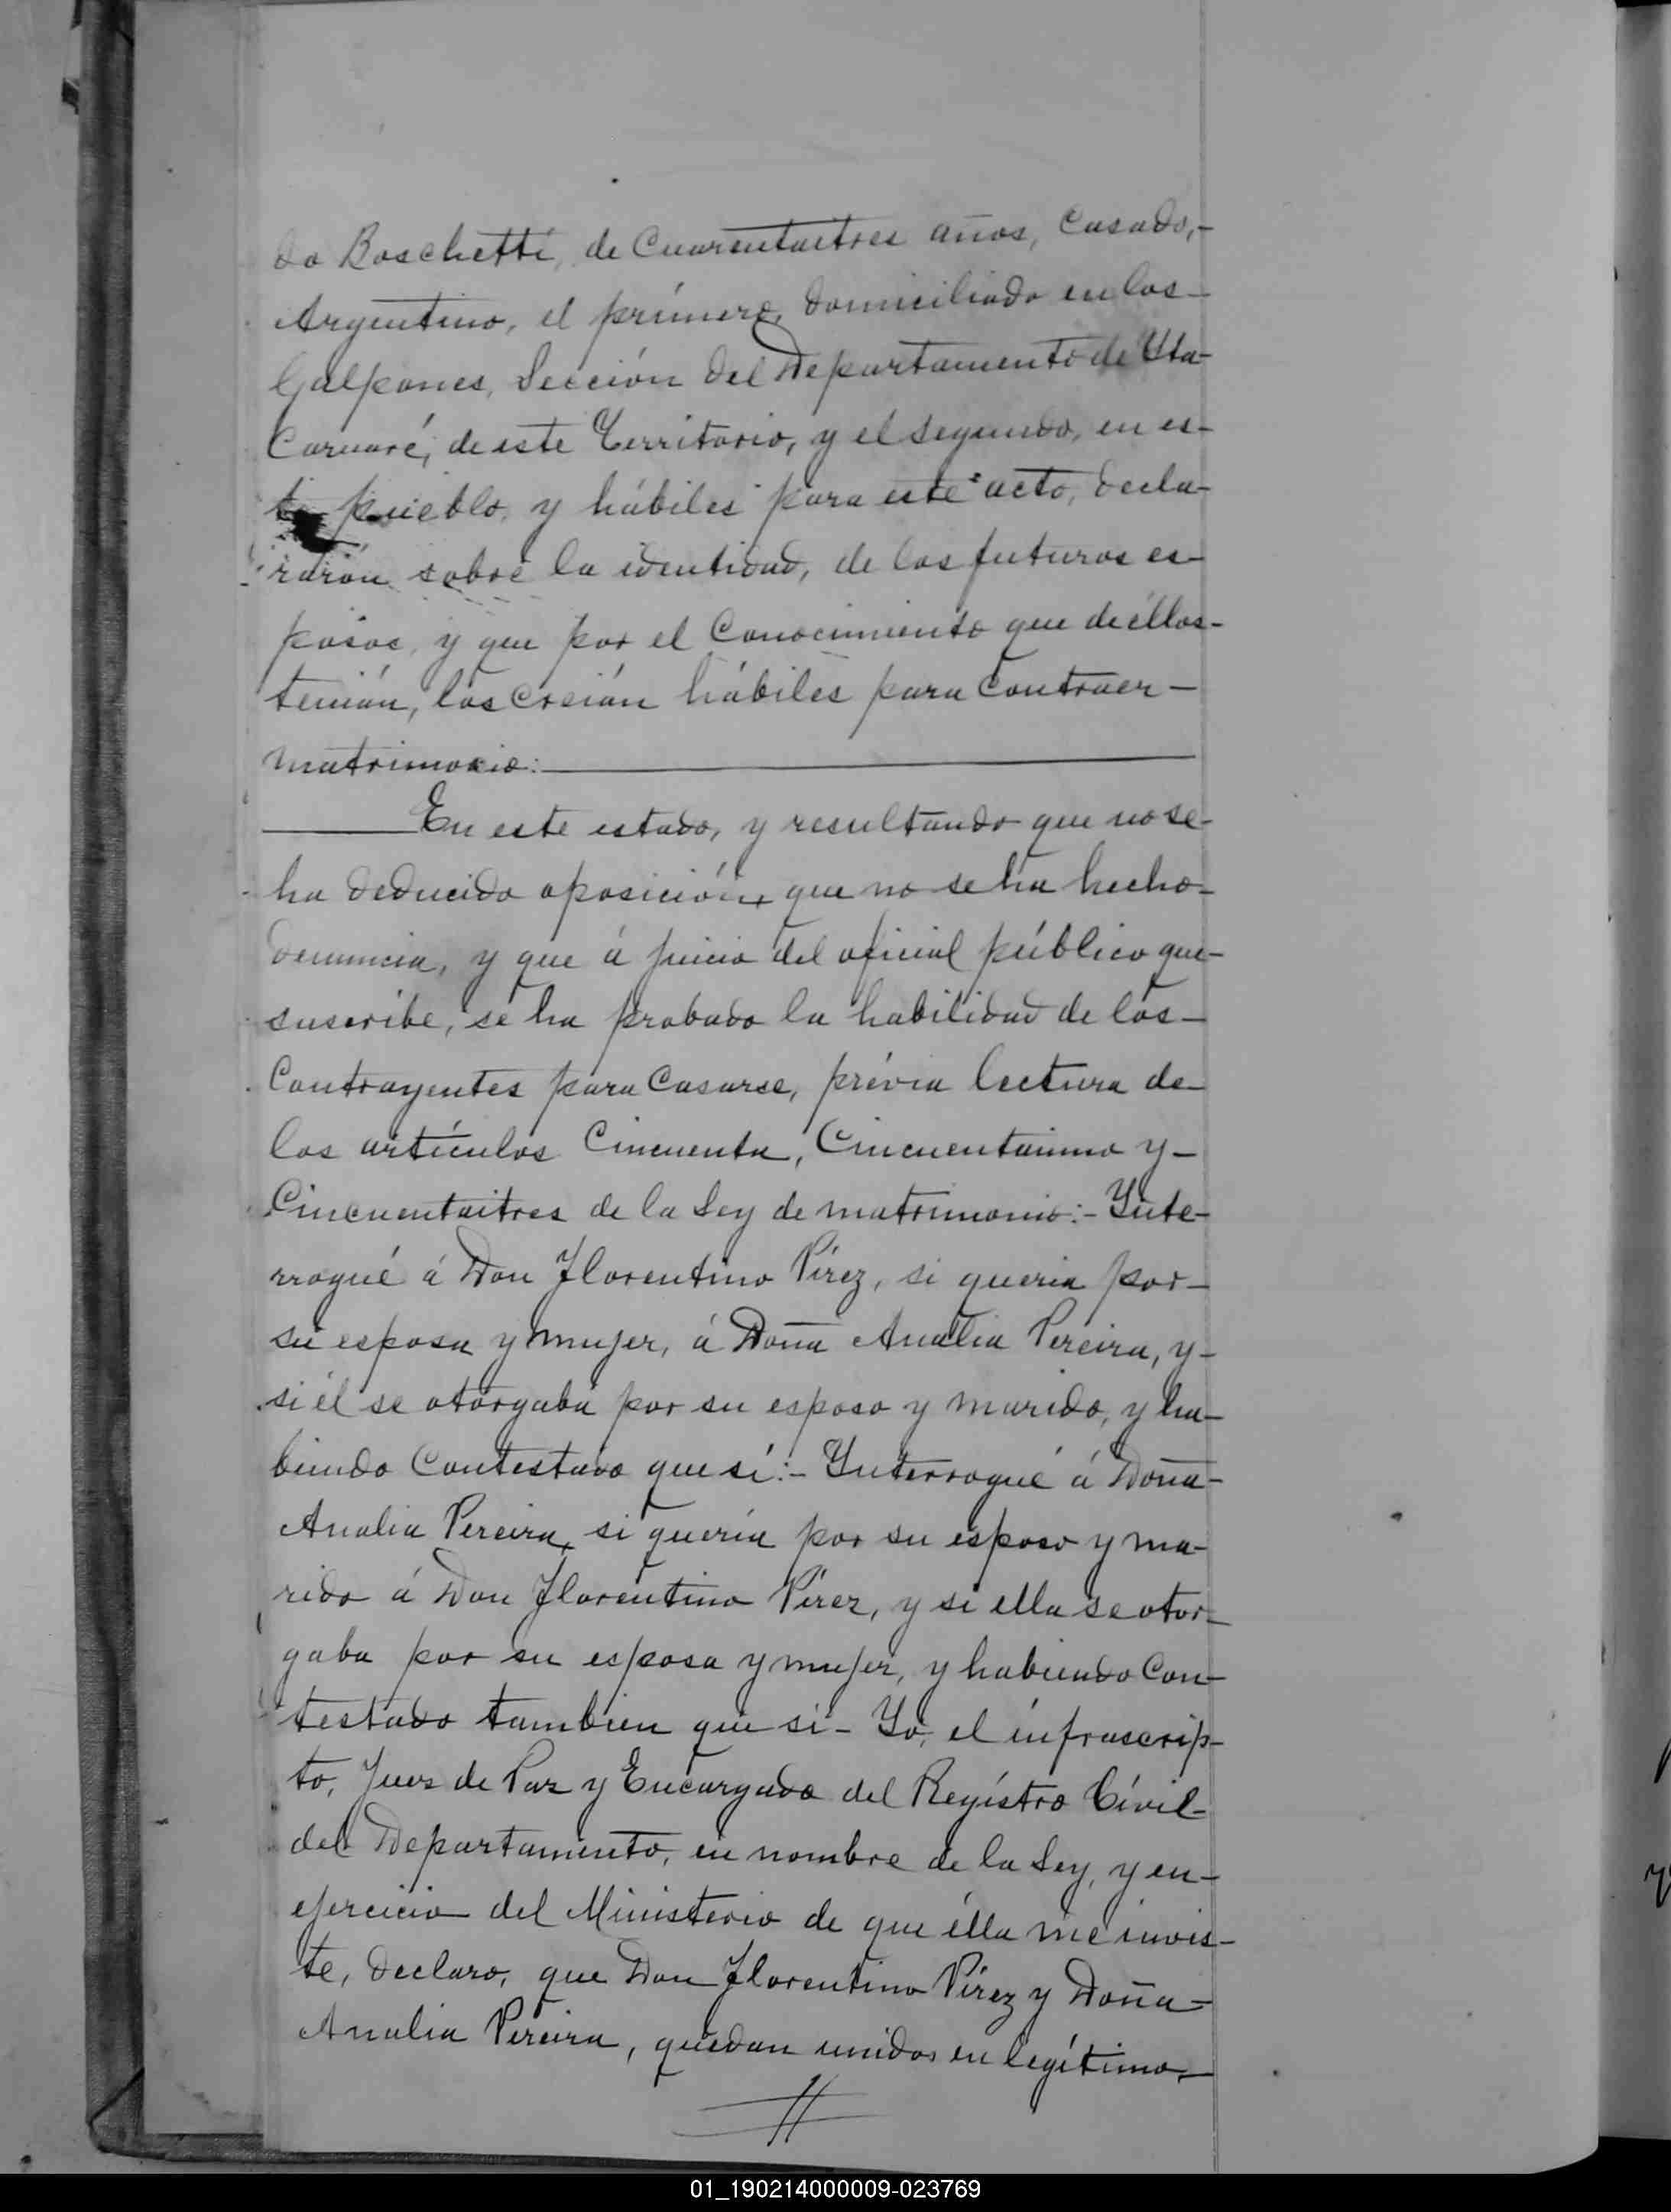 do Boschetti, de Cuarentaitres años, Casado,-
Argentino, el primero, domiciliado en los-
Galpones, Sección del Departamento de Yta-
Caruaré, de este Territorio, y el segundo, en es-
te pueblo, y hábiles para este acto, decla-
rarón sobre la identidad, de los futuros es-
posos, y que por el Conocimiento que de éllos-
tenián, los Creián hábiles para Contraer-
matrimonio:-
En este estado, y resultando que no se-
ha deducido oposición, que no se ha hecho-
denuncia, y que á juicio del oficial público que-
suscribe, se ha probado la habilidad de los-
Contrayentes para Casarse, prévia lectura de-
los artículos Cincuenta, Cincuentaiuno y-
Cincuentaitres de la Ley de matrimonio:- Ynte-
rrogué á Don Florentino Pírez, si queria por-
su esposa y mujer, á Doña Analia Pereira, y-
si él se otorgaba por su esposo y marido, y ha-
biendo Contestado que sí:- Ynterrogué á Doña-
Analia Pereira, si quería por su esposo y ma-
rido á Don Florentino Pírez, y si ella se otor-
gaba por su esposa y mujer, y habiendo Con-
testado tambien que si- Yo, el infrascrip-
to, Juez de Paz y Encargado del Regístro Cívil-
del Departamento, en nombre de la Ley, y en-
ejercicio del Ministerio de que élla me invis-
te, declaro, que Don Florentino Pírez y Doña-
Analia Pereira, quedan unidos en legítimo-
01_190214000009-023769